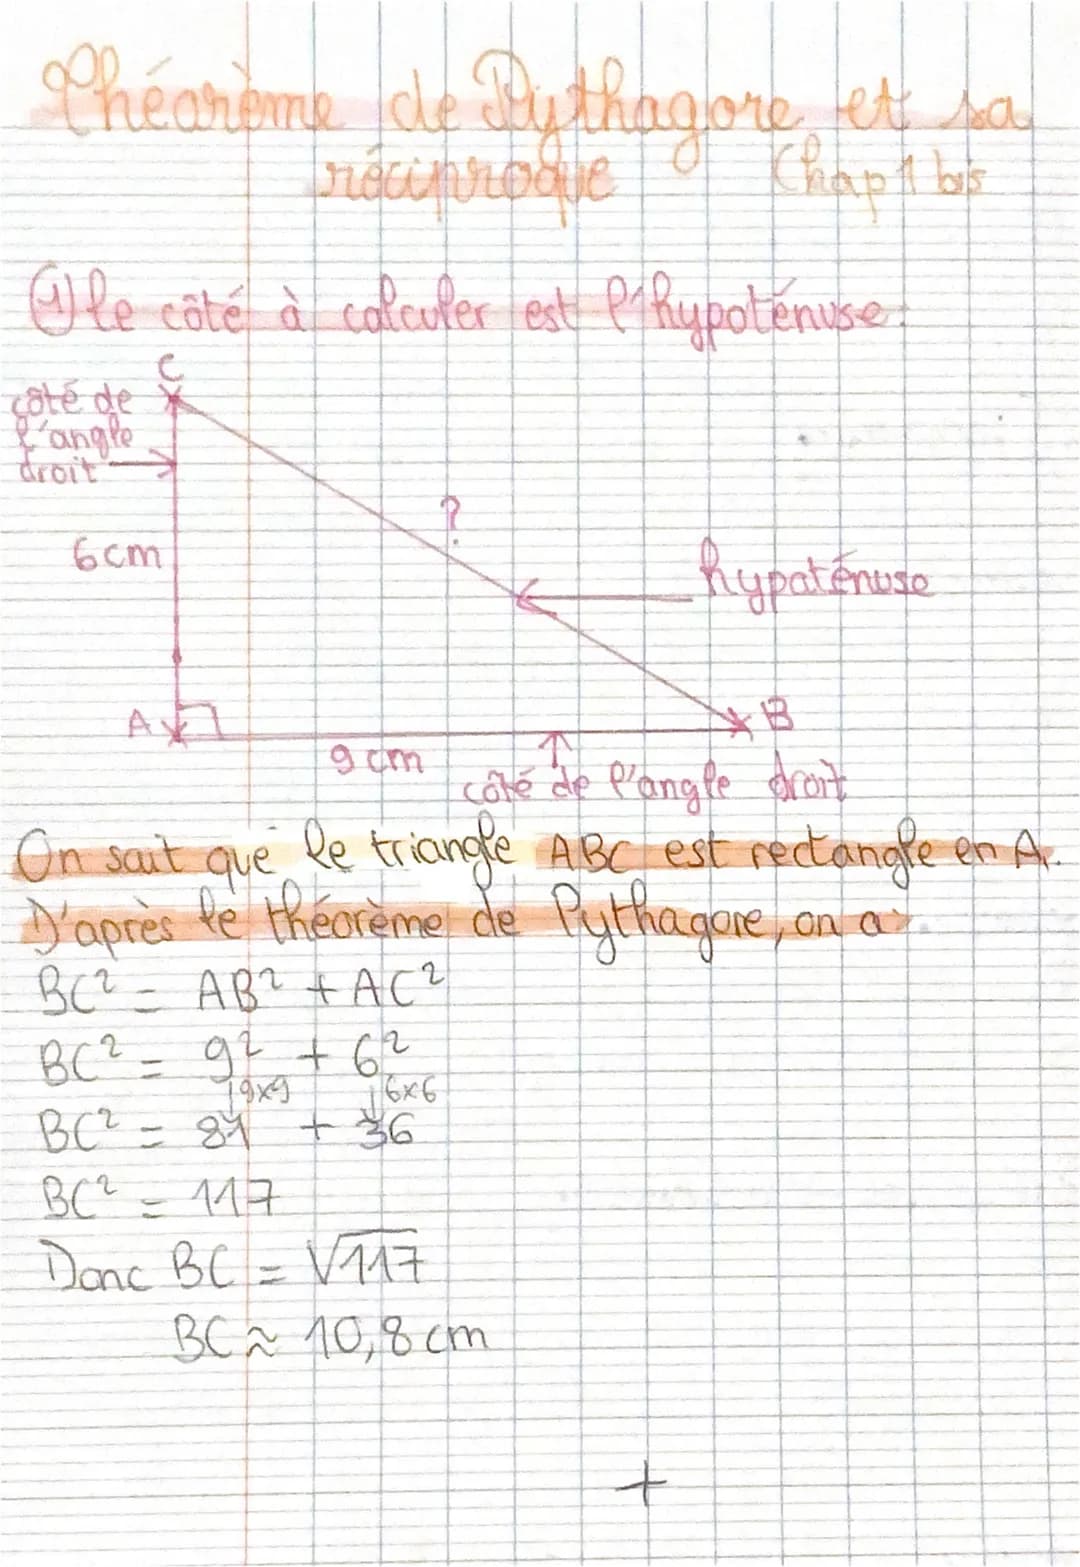 Théorème de Pythagore et sa
réciproque Chap 1 bis
① le côté à calculer est l'hypoténuse.
C
côté de
l'angle
droit
?
6 cm
hypoténuse
A
B
9 cm
côté de l'angle droit
On sait que le triangle ABC est rectangle en A.
D'après le théorème de Pythagore, on a :
BC² = AB² + AC²
BC² = 9² + 6²
9x9 6x6
BC² = 81 + 36
BC² = 117
Donc BC = √117
BC ≈ 10,8 cm
+